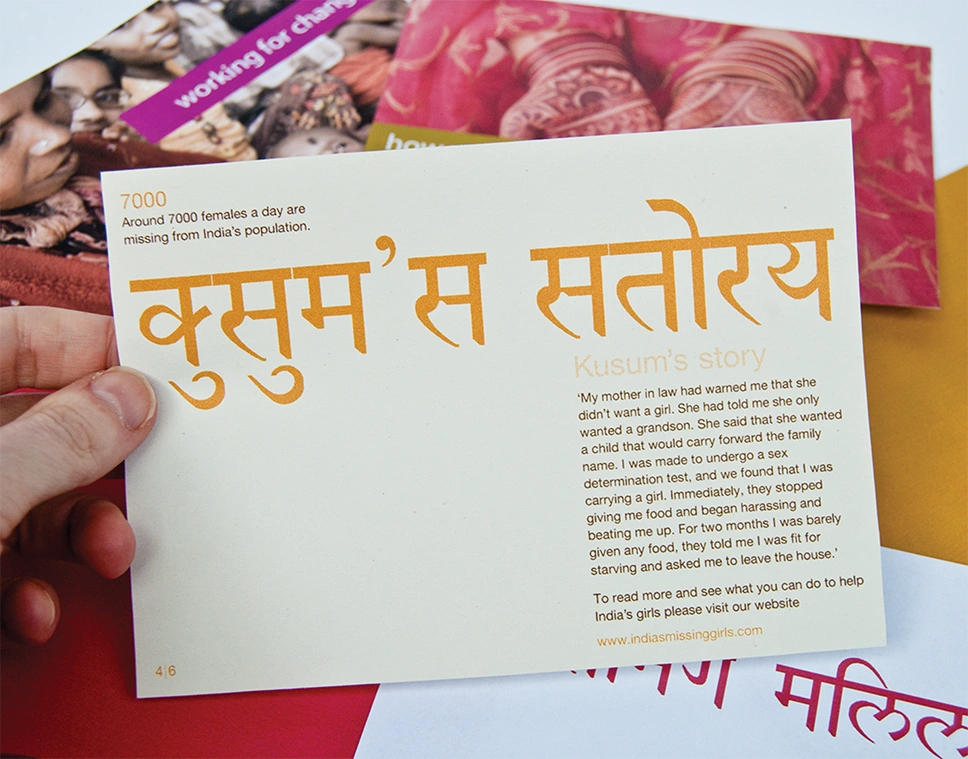 working for
7000
Around 7000 females a day are
missing from India's population.
कुसुम’स सतोरय
Kusum's story
‘My mother in law had warned me that she
didn't want a girl. She had told me she only
wanted a grandson. She said that she wanted
a child that would carry forward the family
name. I was made to undergo a sex
determination test, and we found that I was
carrying a girl. Immediately, they stopped
giving me food and began harassing and
beating me up. For two months I was barely
given any food, they told me I was fit for
starving and asked me to leave the house.’
To read more and see what you can do to help
India's girls please visit our website
www.indiasmissinggirls.com
4|6